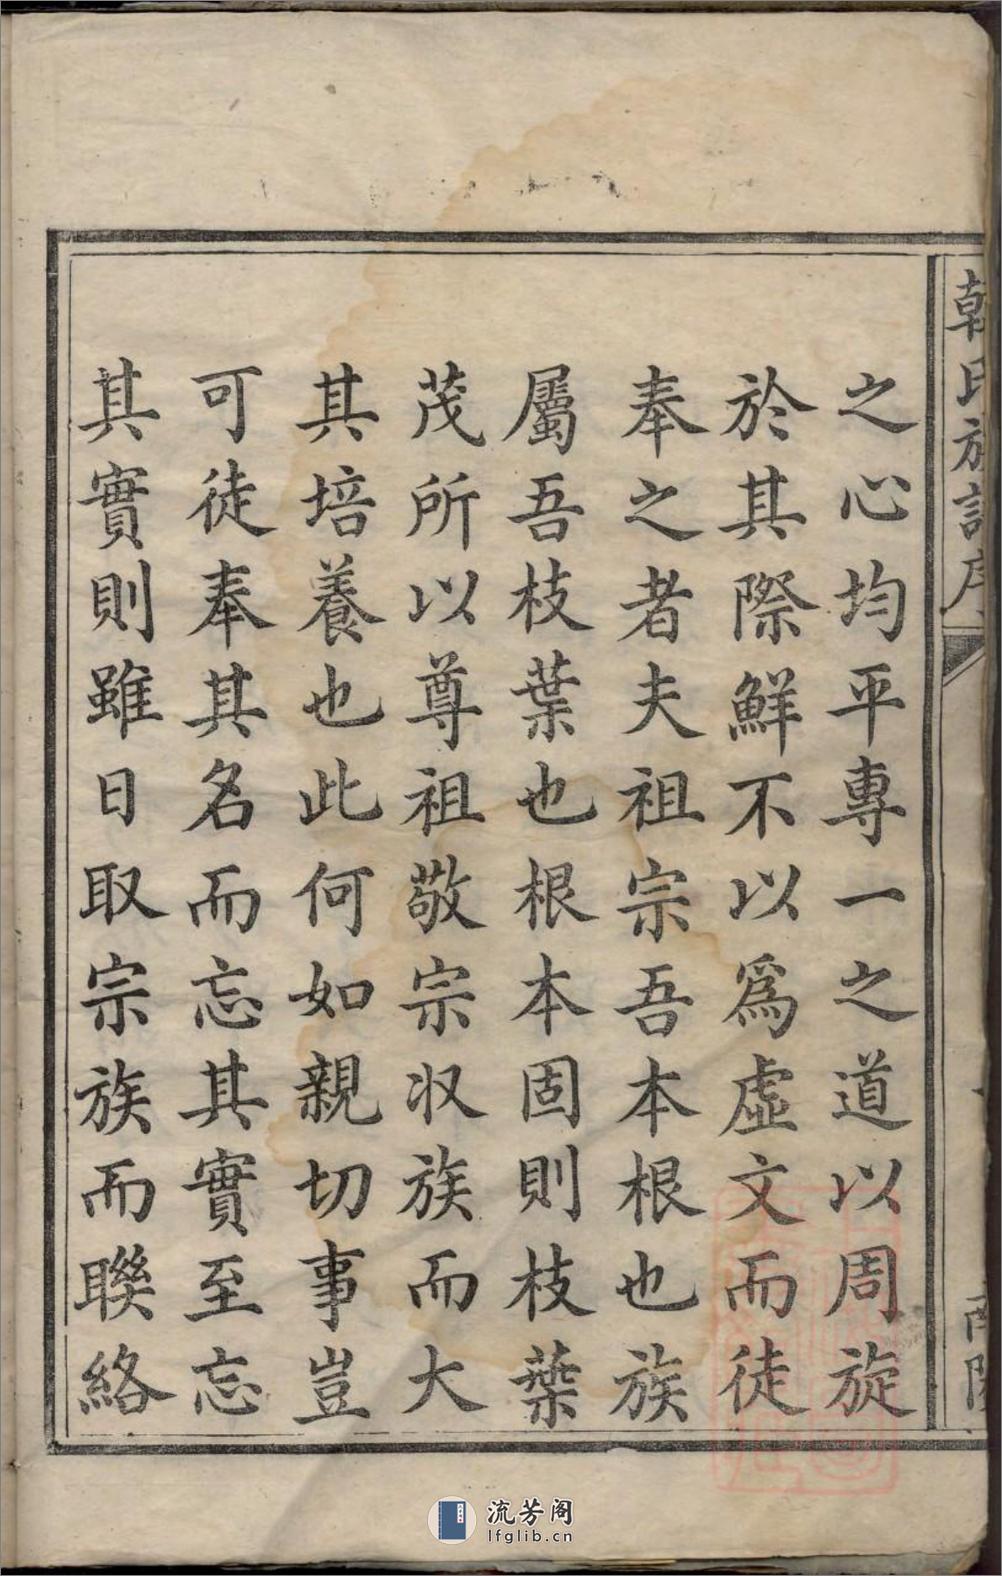 韓氏族譜序
之心均平專一之道以周旋
於其際鮮不以爲虛文而徒
奉之者夫祖宗吾本根也族
屬吾枝葉也根本固則枝葉
茂所以尊祖敬宗収族而大
其培養也此何如親切事豈
可徒奉其名而忘其實至忘
其實則雖日取宗族而聯絡
流芳阁
lfglib.cn